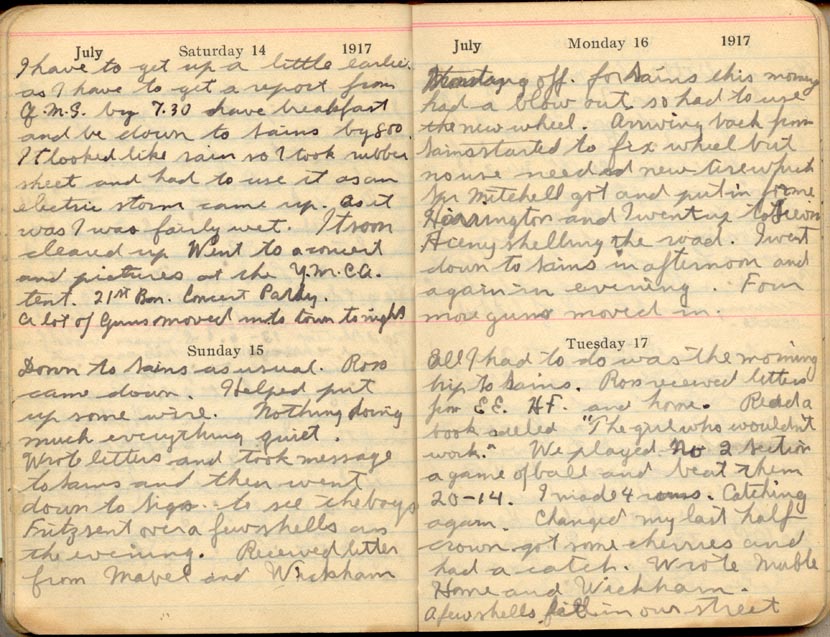 July Saturday 14 1917
I have to get up a little earlier
as I have to get a report from
Q.M.S. by 7.30 have breakfast
and be down to Sains by 8 00.
It looked like rain so I took rubber
sheet and had to use it as an
electric storm came up. as it
was I was fairly wet. It soon
cleared up Went to a concert
and pictures at the Y.M.C.A.
tent. 21st Bon. Concert Party.
A lot of Guns moved into town tonight
Sunday 15
Down to Sains as usual. Ross
came down. Helped put
up some wire. Nothing doing
much everything quiet.
Wrote letters and took message
to Sains and then went
down to Sigs. to see the boys
Fritz sent over a few shells in
the evening. Received letter
from Mabel and Wickham
July Monday 16 1917
off. for Sains this morning
had a blow out so had to use
the new wheel. Arriving back from
Sains started to fix wheel but
no use needed new tire which
Mitchell got and put in for me
Harrington and I went up to
Heiny shelling the road. I went
down to Sains in afternoon and
again in evening. Four
more guns moved in.
Tuesday 17
All I had to do was the morning
trip to Sains. Ross received letters
from E.E. H.F. and home. Read a
book called "The girl who wouldn't
work." We played No 2 Section
a game of ball and beat them
20-14. I made 4 runs. Catching
again. Changed my last half
crown got some cherries and
had a catch. Wrote Mable
Home and Wickham.
A few shells fell in our street